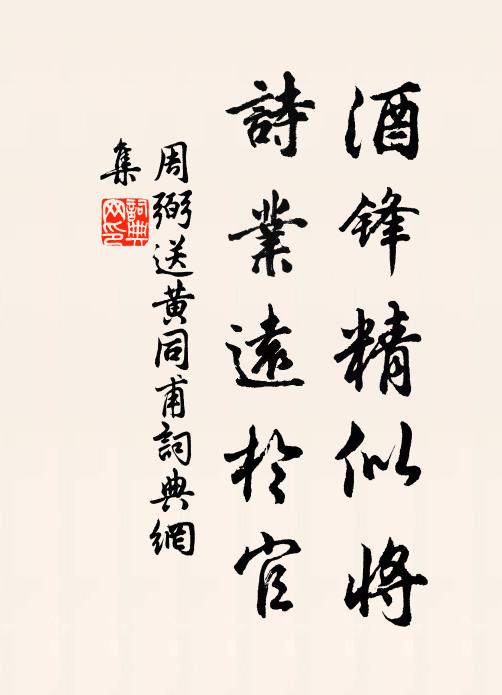 酒鋒精似將
詩業遠於官
周弼送黄同甫詞典網
集
詞典網印